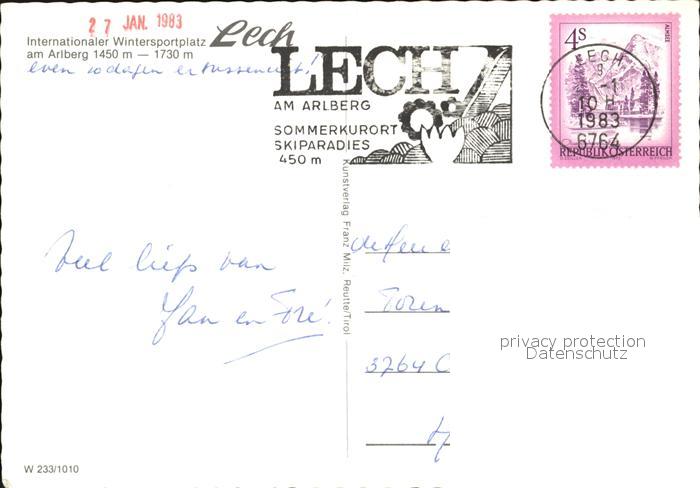 27 JAN. 1983
Internationaler Wintersportplatz Lech
am Arlberg 1450 m — 1730 m
even 10 dagen er tussenuit!
LECH
AM ARLBERG
SOMMERKURORT
SKIPARADIES
450 m
4S
ALMSEE
REPUBLIK ÖSTERREICH
LECH
9
-1
10 H
1983
6764
Veel liefs van
Jan en Tré!
Kunstverlag Franz Milz, Reutte/Tirol
de Heer
Toren
3764 C
privacy protection
Datenschutz
W 233/1010